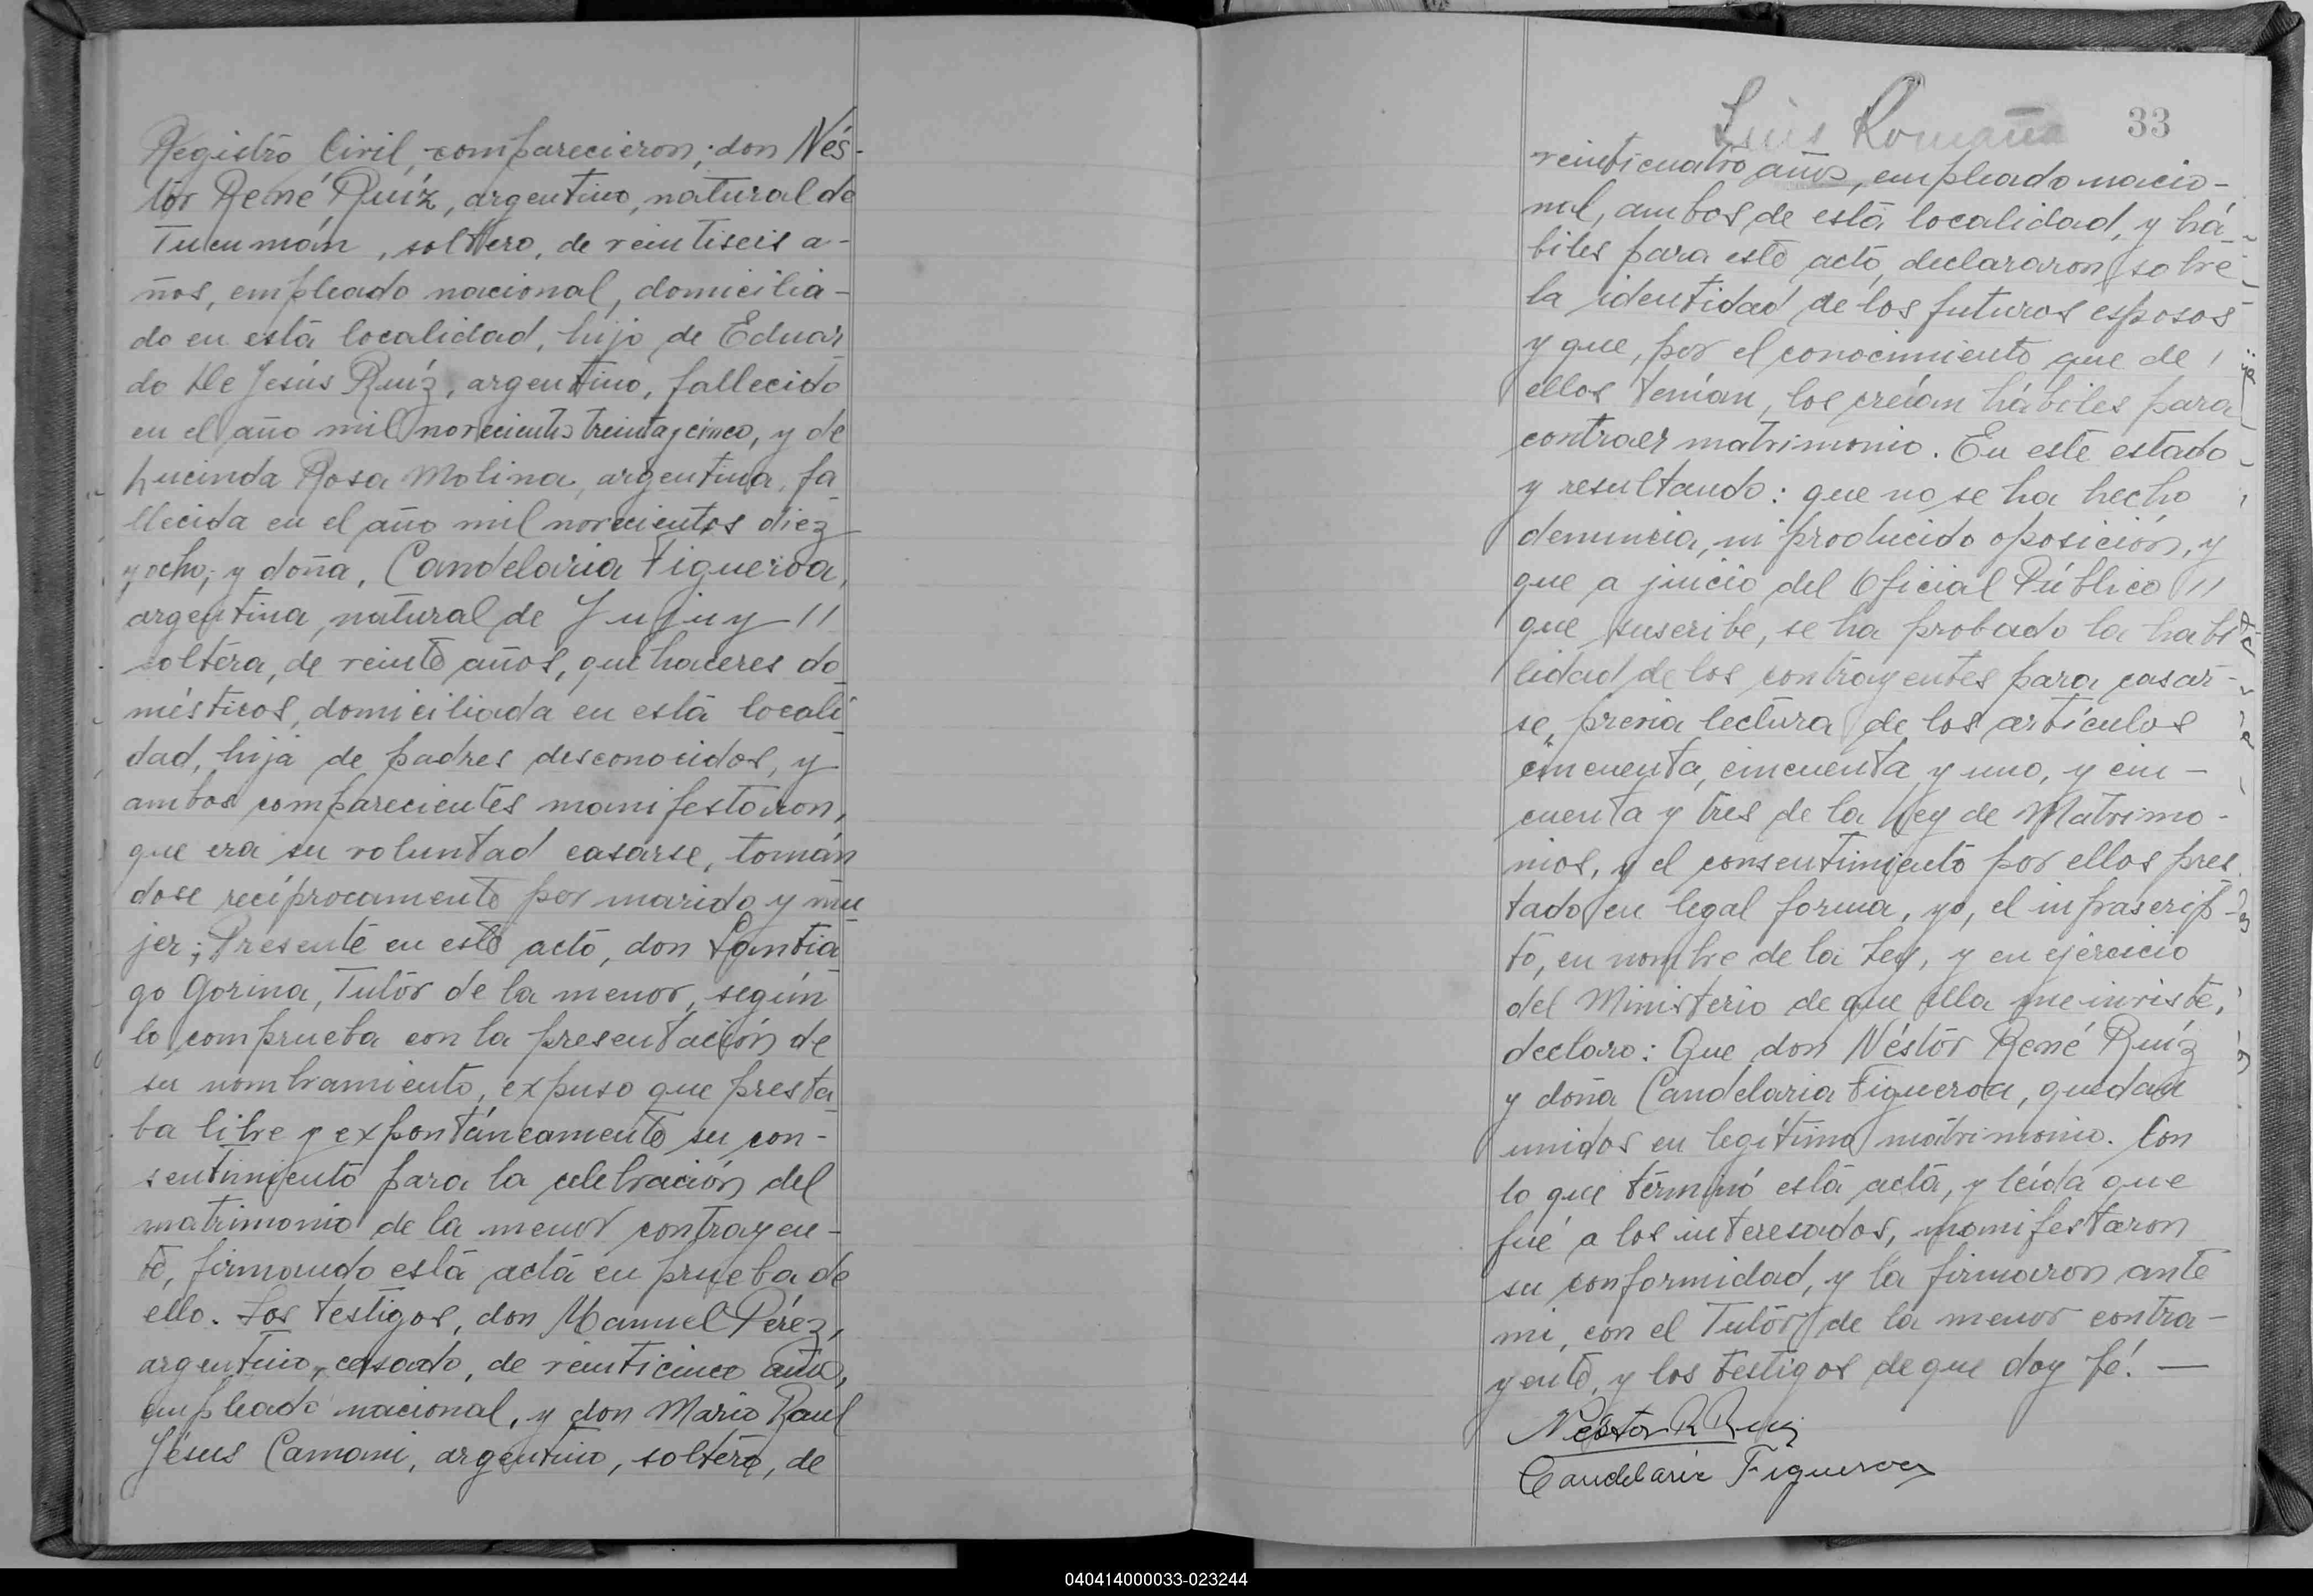 Registro Civil, comparecieron; don Nés-
tor René Ruíz, argentino, natural de
Tucumán, soltero, de veintiseis a-
ños, empleado nacional, domicilia-
do en esta localidad, hijo de Eduar
do De Jesús Ruíz, argentino, fallecido
en el año mil novecientos treinta y cinco, y de
Lucinda Rosa Molina, argentina, fa
llecida en el año mil novecientos diez
y ocho; y doña, Candelaria Figueroa,
argentina, natural de Jujuy //
soltera, de veinte años, quehaceres do
mésticos, domiciliada en esta locali
dad, hija de padres desconocidos, y
ambos comparecientes manifestaron,
que era su voluntad casarse, tomán
dose recíprocamente por marido y mu
jer; Presente en este acto, don Santia
go Gorina, Tutor de la menor, según
lo comprueba con la presentación de
su nombramiento, expuso que presta
ba libre y expontáneamente su con-
sentimiento para la celebración del
matrimonio de la menor contrayen-
te, firmando esta acta en prueba de
ello. Los testigos, don Manuel Pérez,
argentino, casado, de veinticinco años,
empleado nacional, y don Mario Raul
Jesus Camani, argentino, soltero, de
Luis Romaña 33
veinticuatro años, empleado nacio-
nal, ambos de esta localidad, y há
biles para este acto, declararon sobre
la identidad de los futuros esposos
y que, por el conocimiento que de /
ellos tenían, los creían hábiles para
contraer matrimonio. En este estado
y resultando: que no se ha hecho
denuncia, ni producido oposición, y
que a juicio del Oficial Público //
que suscribe, se ha probado la habi
lidad de los contrayentes para casar-
se, previa lectura de los artículos
cincuenta, cincuenta y uno, y cin-
cuenta y tres de la Ley de Matrimo-
nios, y el consentimiento por ellos pres
tado en legal forma, yo, el infrascrip-
to, en nombre de la Ley, y en ejercicio
del Ministerio de que ella me inviste,
declaro: Que don Néstor René Ruíz
y doña Candelaria Figueroa, quedan
unidos en legítimo matrimonio. Con
lo que terminó esta acta, y leída que
fué a los interesados, manifestaron
su conformidad, y la firmaron ante
mi, con el Tutor de la menor contra-
yente, y los testigos de que doy fé. —
Néstor R Ruiz
Candelaria Figueroa
040414000033-023244